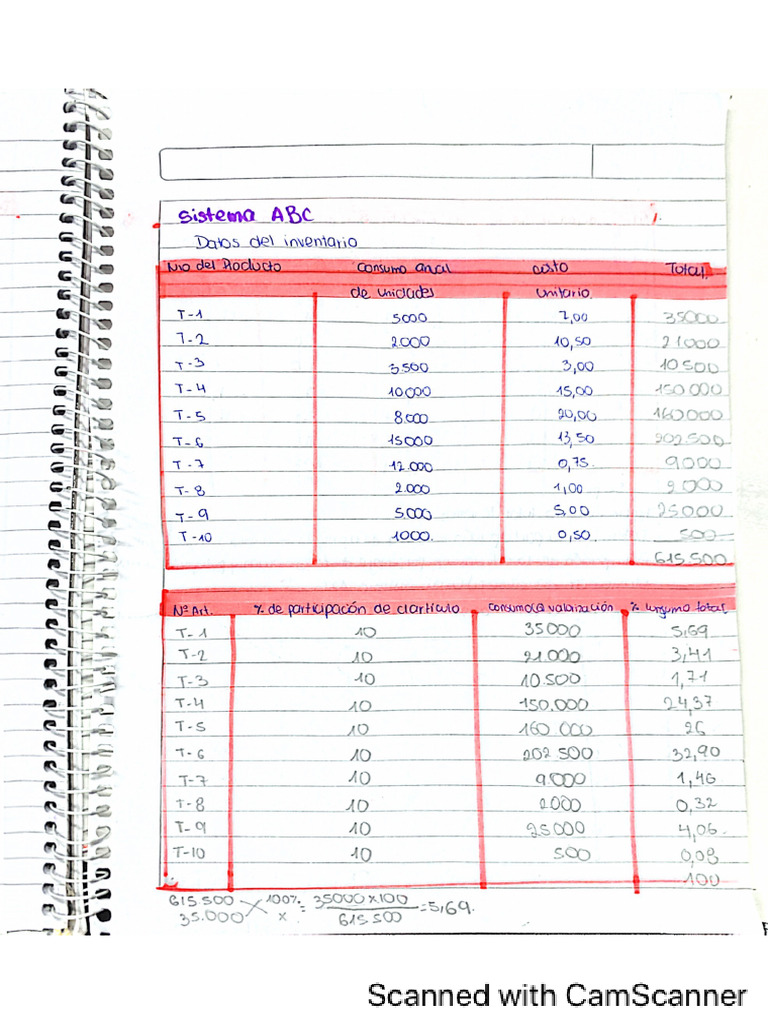 Sistema ABC
Datos del inventario
Nro del Producto consumo anual costo Total
de unidades unitario
T-1 5000 7,00 35000
T-2 2000 10,50 21000
T-3 3.500 3,00 10500
T-4 10000 15,00 150000
T-5 8.000 20,00 160000
T-6 15000 13,50 202500
T-7 12.000 0,75 9000
T-8 2.000 1,00 2000
T-9 5.000 5,00 25000
T-10 1000 0,50 500
615.500
Nº Art. % de participación de clartículo consumo valorización % total
T-1 10 35000 5,69
T-2 10 21.000 3,41
T-3 10 10.500 1,71
T-4 10 150.000 24,37
T-5 10 160.000 26
T-6 10 202.500 32,90
T-7 10 9.000 1,46
T-8 10 2000 0,32
T-9 10 25000 4,06
T-10 10 500 0,08
100
615.500 100% = 35000x100 = 5,69.
35.000 x 615500
Scanned with CamScanner